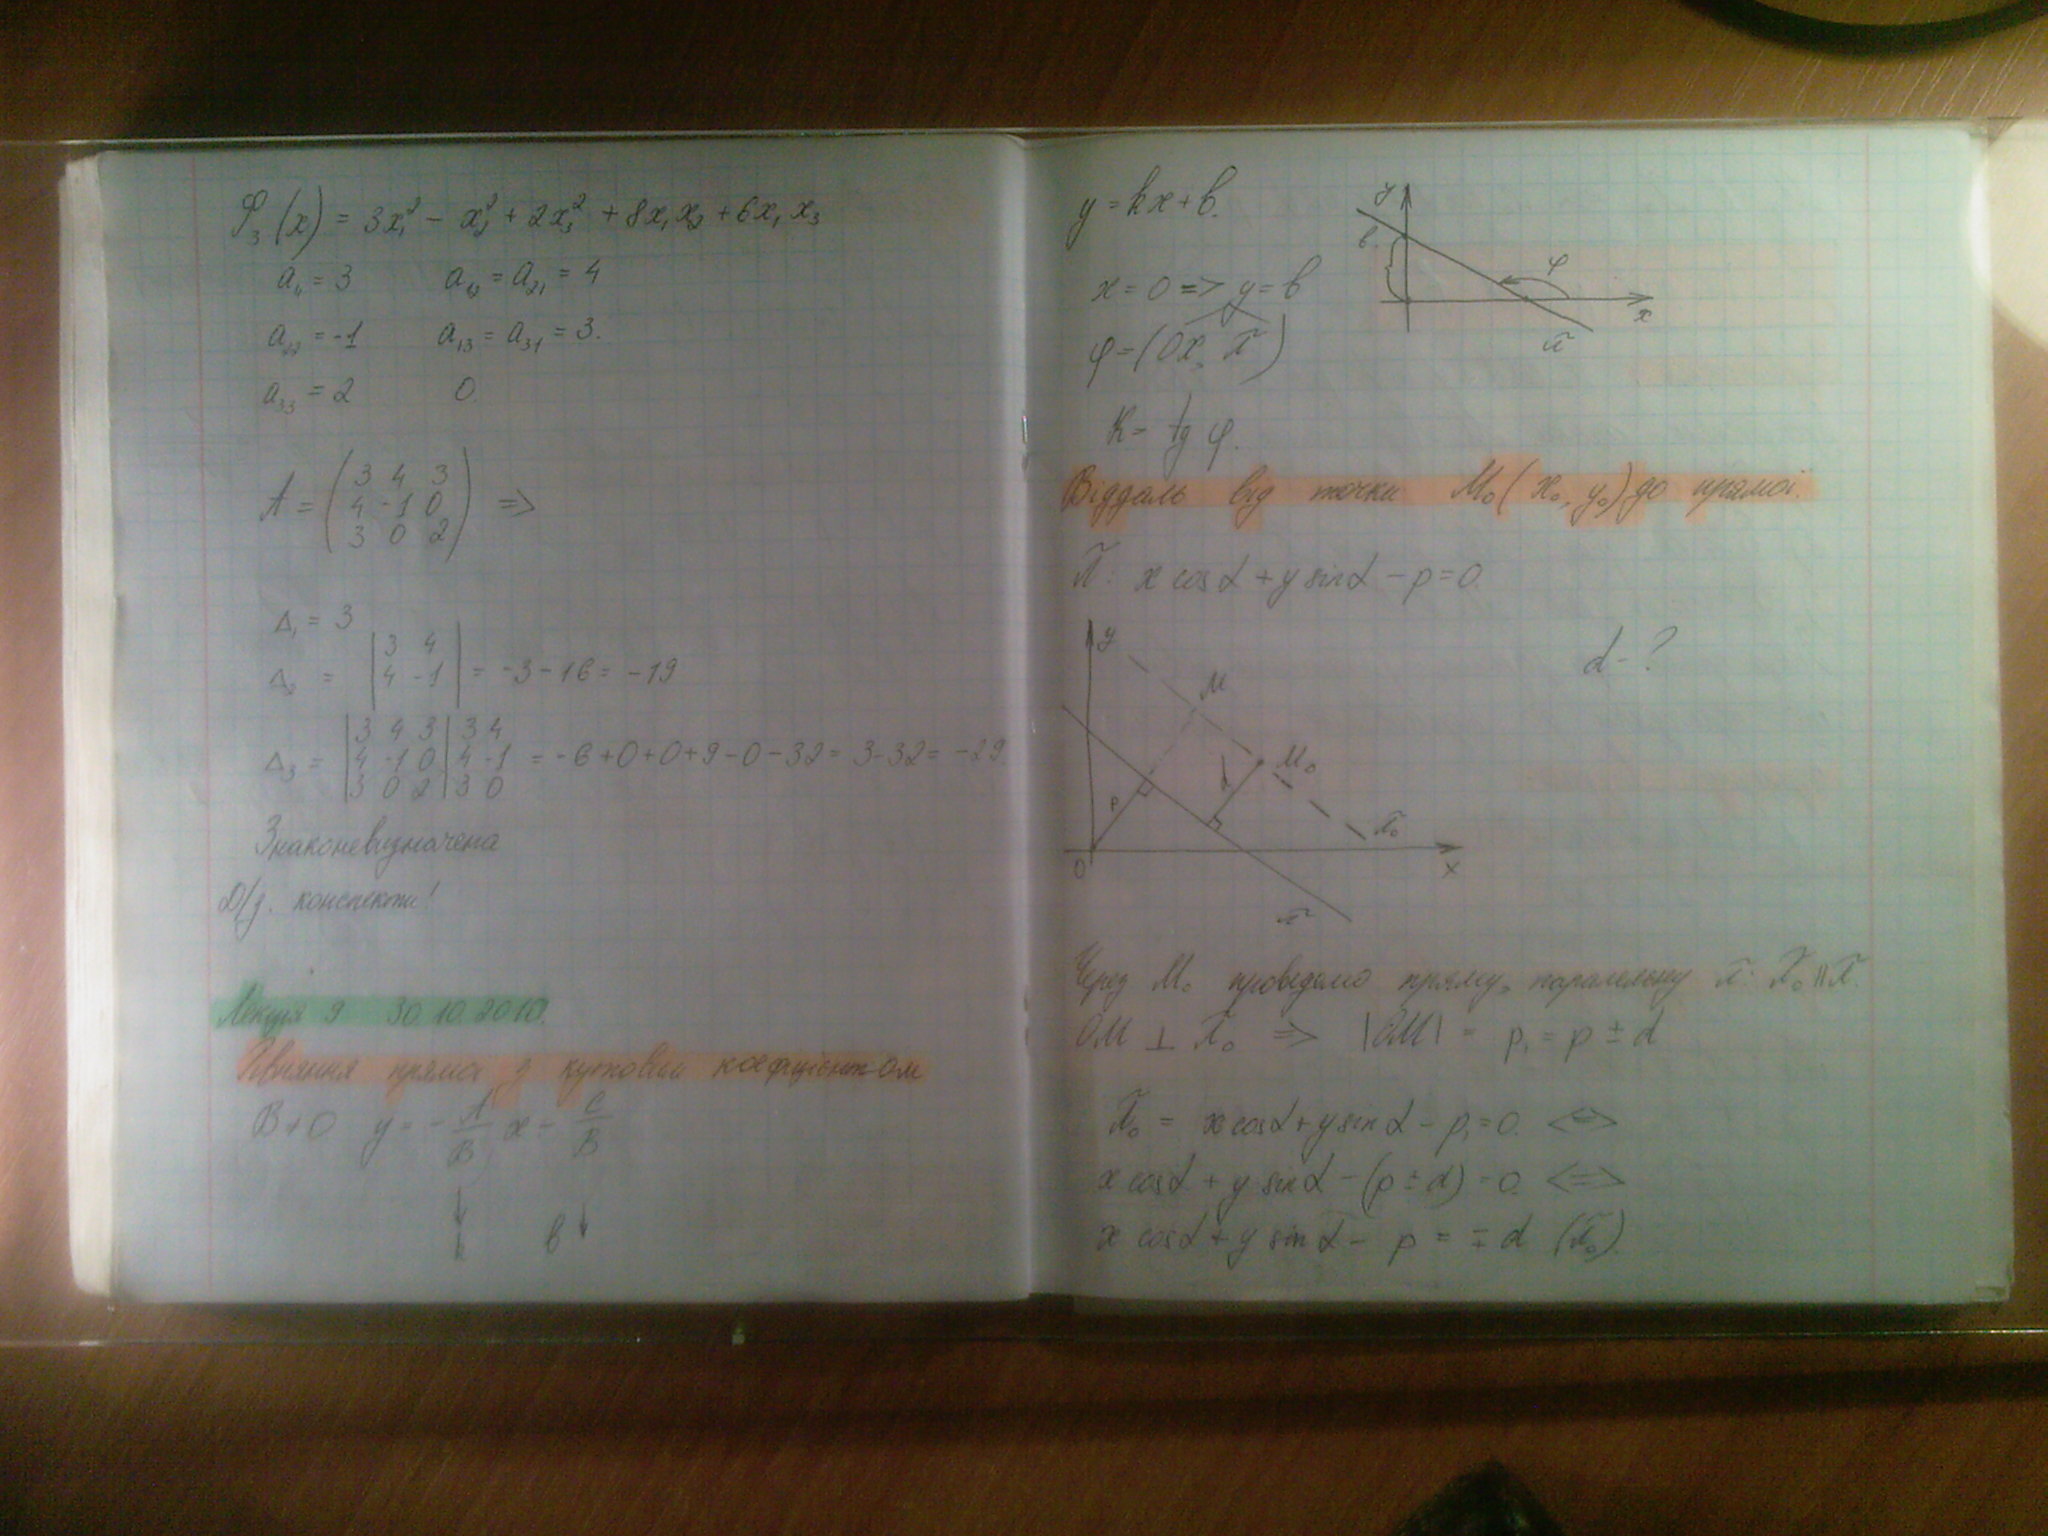 Φ₃(x) = 3x₁² - x₂² + 2x₃² + 8x₁x₂ + 6x₁x₃
a₁₁ = 3 a₁₂ = a₂₁ = 4
a₂₂ = -1 a₁₃ = a₃₁ = 3.
a₃₃ = 2 0.
A = ( 3 4 3
4 -1 0
3 0 2 ) =>
Δ₁ = 3
Δ₂ = | 3 4
4 -1 | = -3 - 16 = -19
Δ₃ = | 3 4 3 | 3 4
4 -1 0 | 4 -1
3 0 2 | 3 0 = -6 + 0 + 0 + 9 - 0 - 32 = 3 - 32 = -29
Знаконевизначена
Д/з. конспекти!
Лекція 9 30.10.2010.
Рівняння прямої з кутовим коефіцієнтом
B ≠ 0 y = - A/B x - C/B
↓ ↓
k b
y = kx + b.
y b φ x π
x = 0 => y = b
φ = (Ox, π)
k = tg φ.
Віддаль від точки M₀(x₀, y₀) до прямої.
π: x cosα + y sinα - p = 0.
d - ?
y M M₀ d P π₀ 0 x π
Через M₀ проведемо пряму, паралельну π: π₀ || π.
OM ⊥ π₀ => |OM| = p₁ = p ± d
π₀ = x cosα + y sinα - p₁ = 0. <=>
x cosα + y sinα - (p ± d) = 0. <=>
x cosα + y sinα - p = ∓ d (π₀)